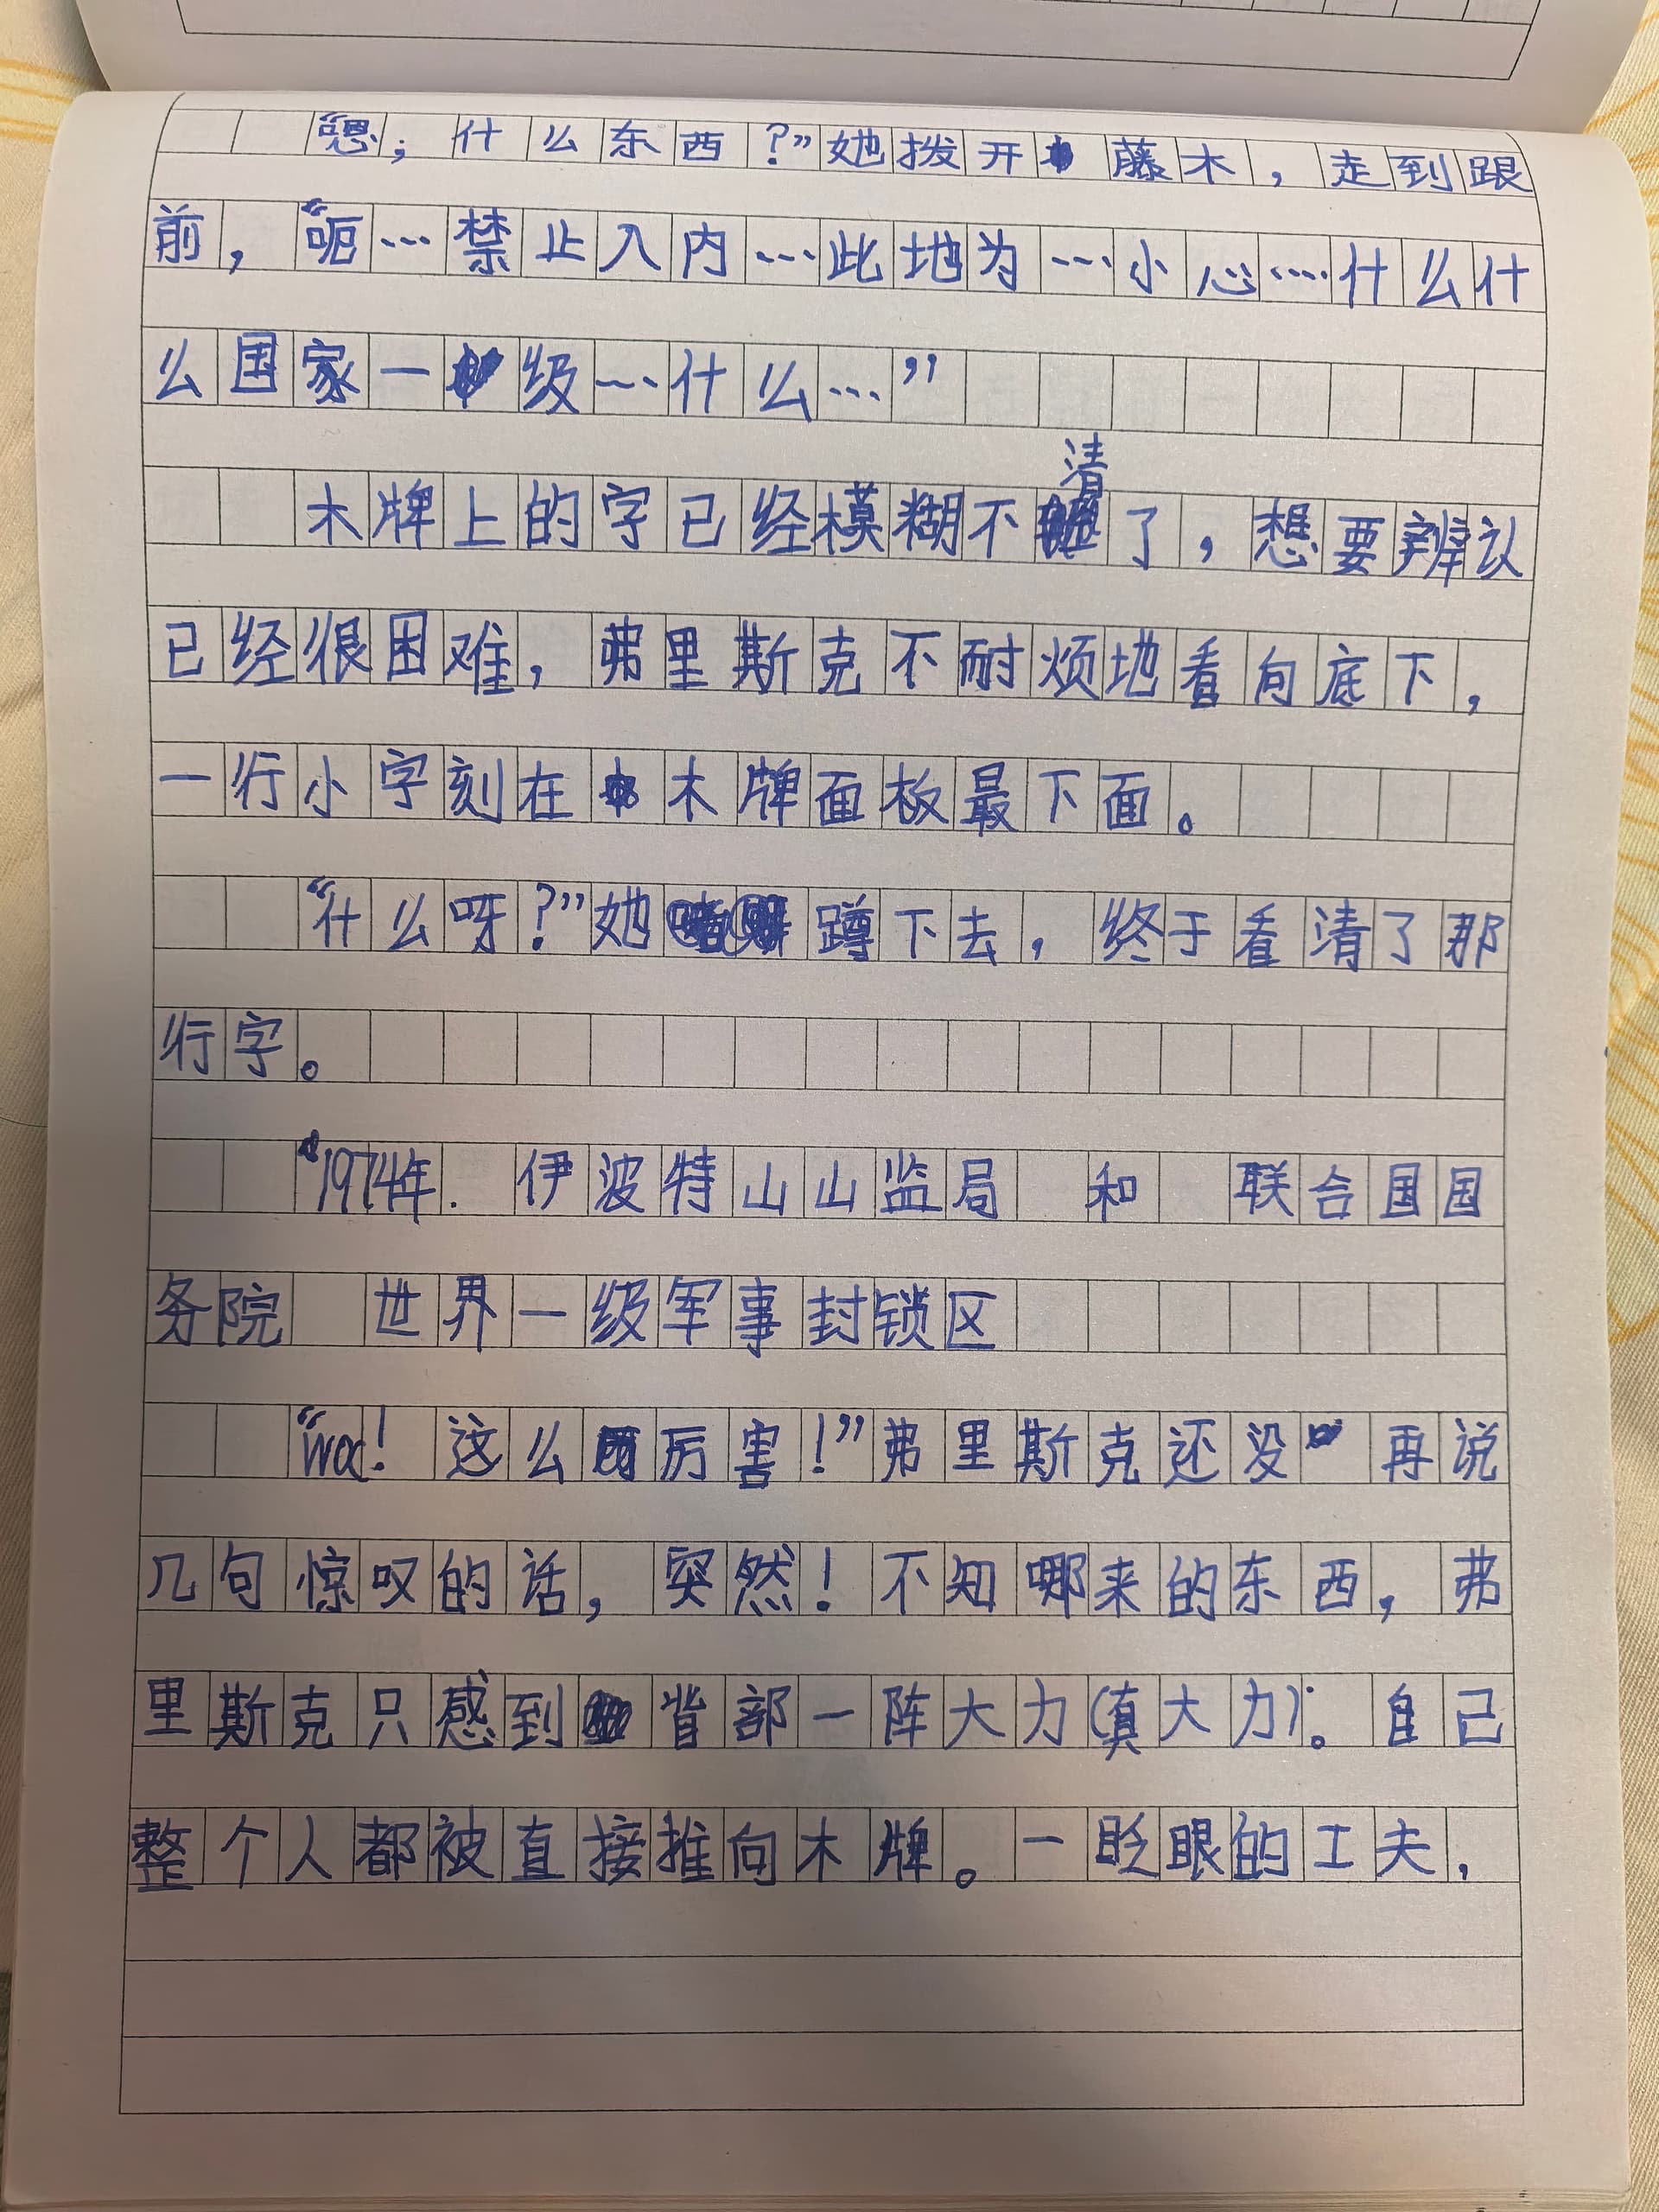 “嗯，什么东西？”她拨开藤木，走到跟
前，“呃…禁止入内…此地为…小心…什么什
么国家一级…什么…”
木牌上的字已经模糊不清了，想要辨认
已经很困难，弗里斯克不耐烦地看向底下，
一行小字刻在木牌面板最下面。
“什么呀？”她蹲下去，终于看清了那
行字。
“1974年. 伊波特山山监局 和 联合国国
务院 世界一级军事封锁区
“woc！这么厉害！”弗里斯克还没再说
几句惊叹的话，突然！不知哪来的东西，弗
里斯克只感到背部一阵大力(真大力)。自己
整个人都被直接推向木牌。一眨眼的工夫，